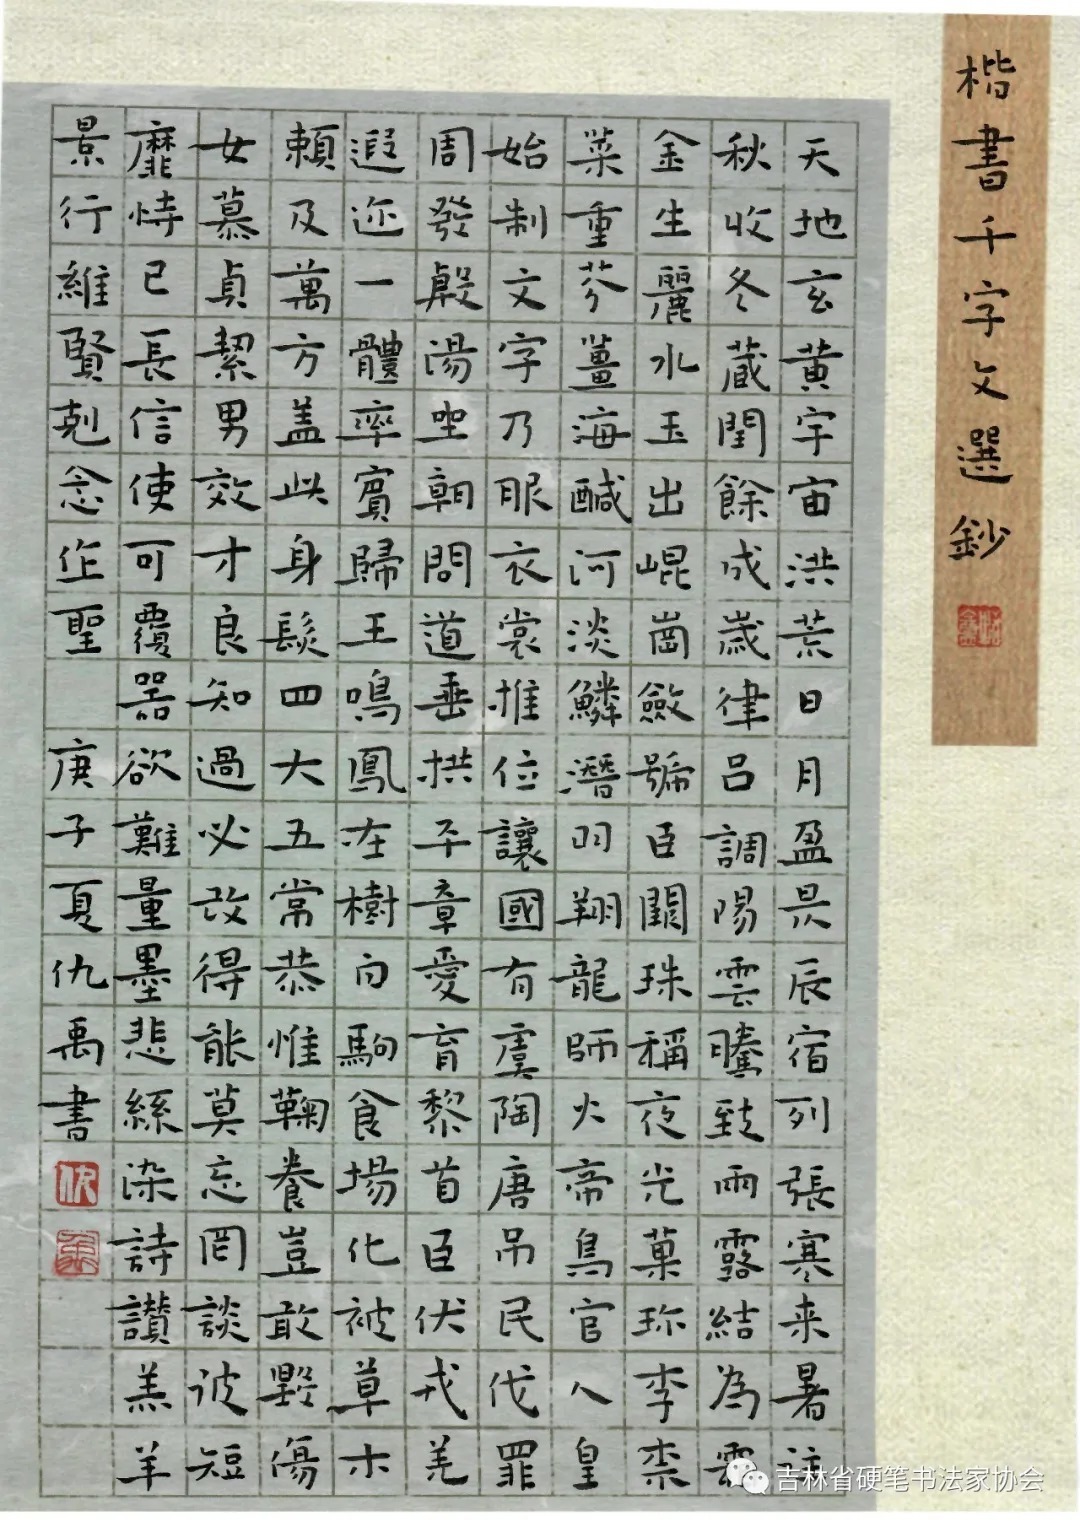 楷書千字文選鈔
天地玄黄宇宙洪荒日月盈昃辰宿列張寒来暑往
秋收冬蔵閏餘成歲律吕調陽雲騰致雨露結為霜
金生麗水玉出崐崗斂號臣闕珠稱夜光菓珎李柰
菜重芥薑海鹹河淡鱗潛羽翔龍師火帝鳥官人皇
始制文字乃服衣裳推位讓國有虞陶唐吊民伐罪
周發殷湯坐朝問道垂拱平章愛育黎首臣伏戎羌
遐迩一體率賓歸王鳴鳳在樹白駒食場化被草木
頼及萬方盖此身髮四大五常恭惟鞠養豈敢毀傷
女慕貞絜男效才良知過必改得能莫忘罔談彼短
靡恃己長信使可覆器欲難量墨悲絲染詩讃羔羊
景行維賢剋念作聖 庚子夏仇禹書
仇
禹
吉林省硬笔书法家协会